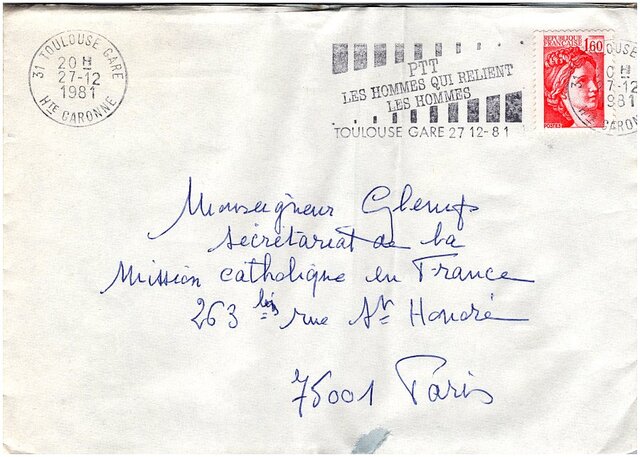 31 TOULOUSE GARE
20 H
27-12
1981
Hte GARONNE
PTT
LES HOMMES QUI RELIENT
LES HOMMES
TOULOUSE GARE 27 12-81
REPUBLIQUE
FRANCAISE
1,60
POSTES
Monseigneur Glemp
secrétariat de la
Mission catholique en France
263 bis rue St Honoré
75001 Paris